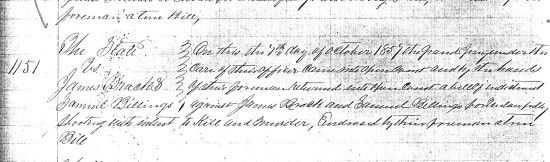 foreman a true Bill,
The State } On this the 7th day of October 1857 the grand jury under the
1151 vs } care of their Officer came into open Court and by the hands
James } of their foreman returned into open Court a bill of indictment
Samuel Billings } against James and Samuel Billings for unlawfully
shooting with intent to Kill and Murder, Endorsed by their foreman a true
Bill